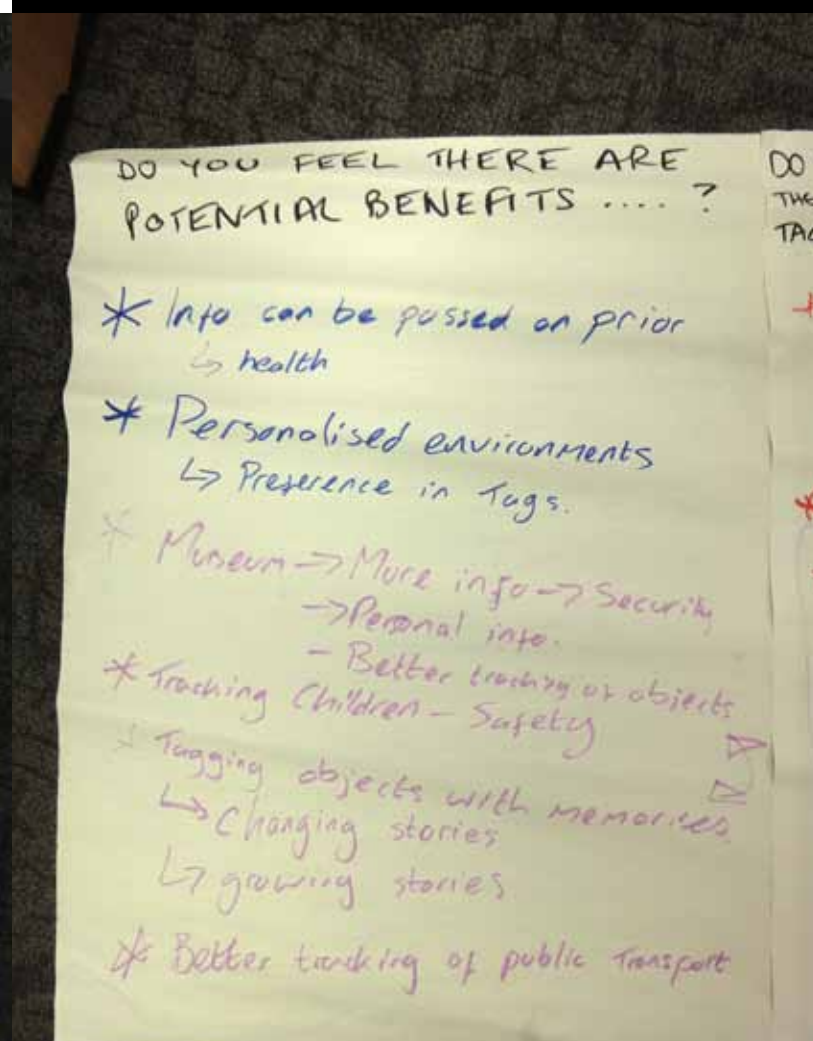 DO YOU FEEL THERE ARE
POTENTIAL BENEFITS .... ?
* Info can be passed on prior
↳ health
* Personalised environments
↳ Preference in Tags.
* Museum → More info → Security
→ Personal info.
- Better tracking of objects
* Tracking Children - Safety
* Tagging objects with memories
↳ Changing stories
↳ growing stories
* Better tracking of public Transport
DO
THE